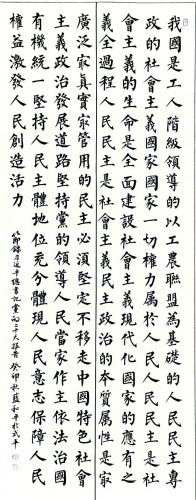 我國是工人階級領導的以工農聯盟為基礎的人民民主專
政的社會主義國家國家一切權力屬於人民人民民主是社
會主義的生命是全面建設社會主義現代化國家的應有之
義全過程人民民主是社會主義民主政治的本質屬性是最
廣泛最真實最管用的民主必須堅定不移走中國特色社會
主義政治發展道路堅持黨的領導人民當家作主依法治國
有機統一堅持人民主體地位充分體現人民意志保障人民
權益激發人民創造活力
節錄習近平總書記黨的二十大報告 癸卯秋藍和平於武平